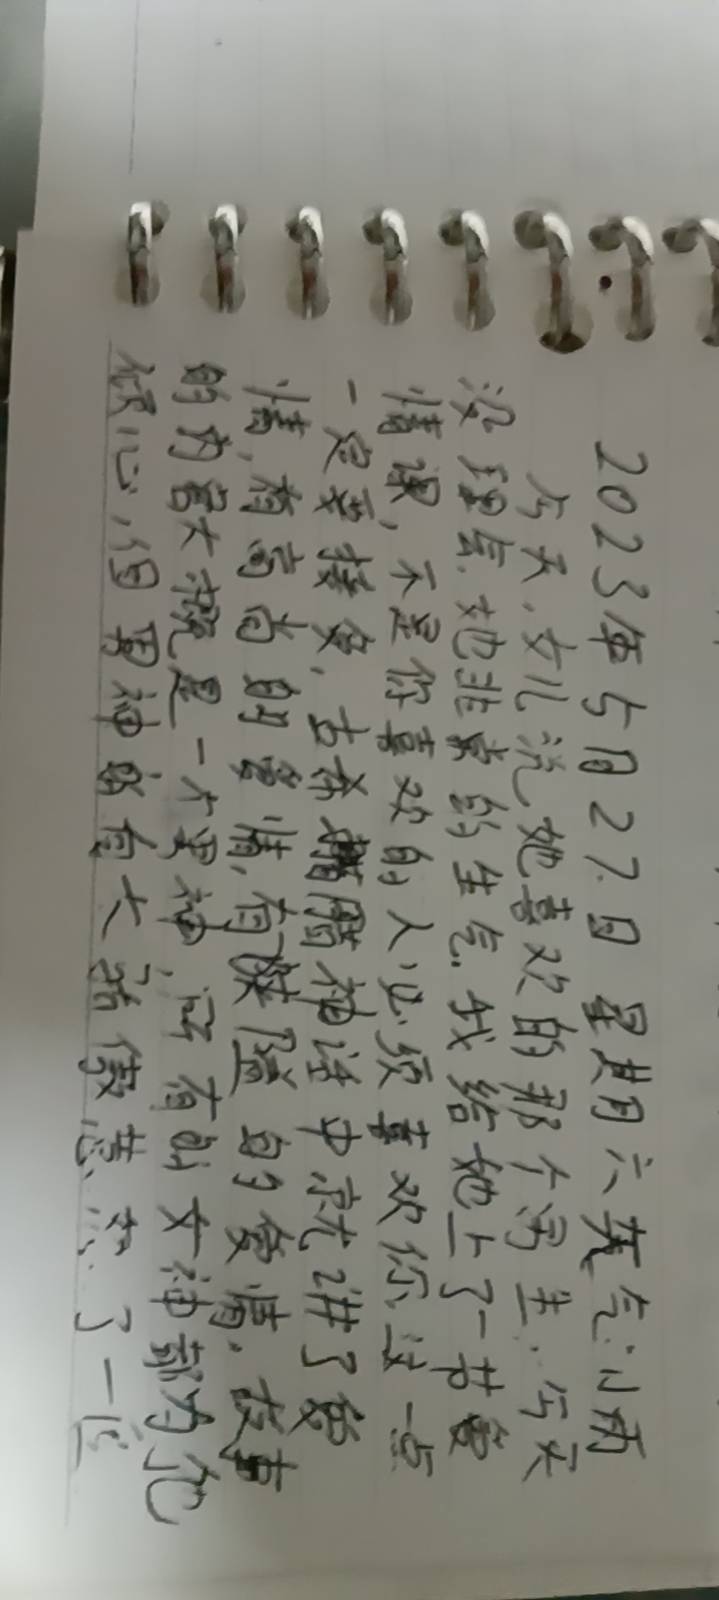 2023年5月27日 星期六 天气:小雨
今天,女儿说她喜欢的那个男生,今天
没理会她,非常的生气。我给她上了一节爱
情课,不是你喜欢的人必须喜欢你,这一点
一定要接受,古希腊神话中就讲了爱
情,有高尚的爱情,有狭隘的爱情。故事
的内容大概是一个男神,所有的女神都为他
倾心,但男神自大骄傲,惹了一位